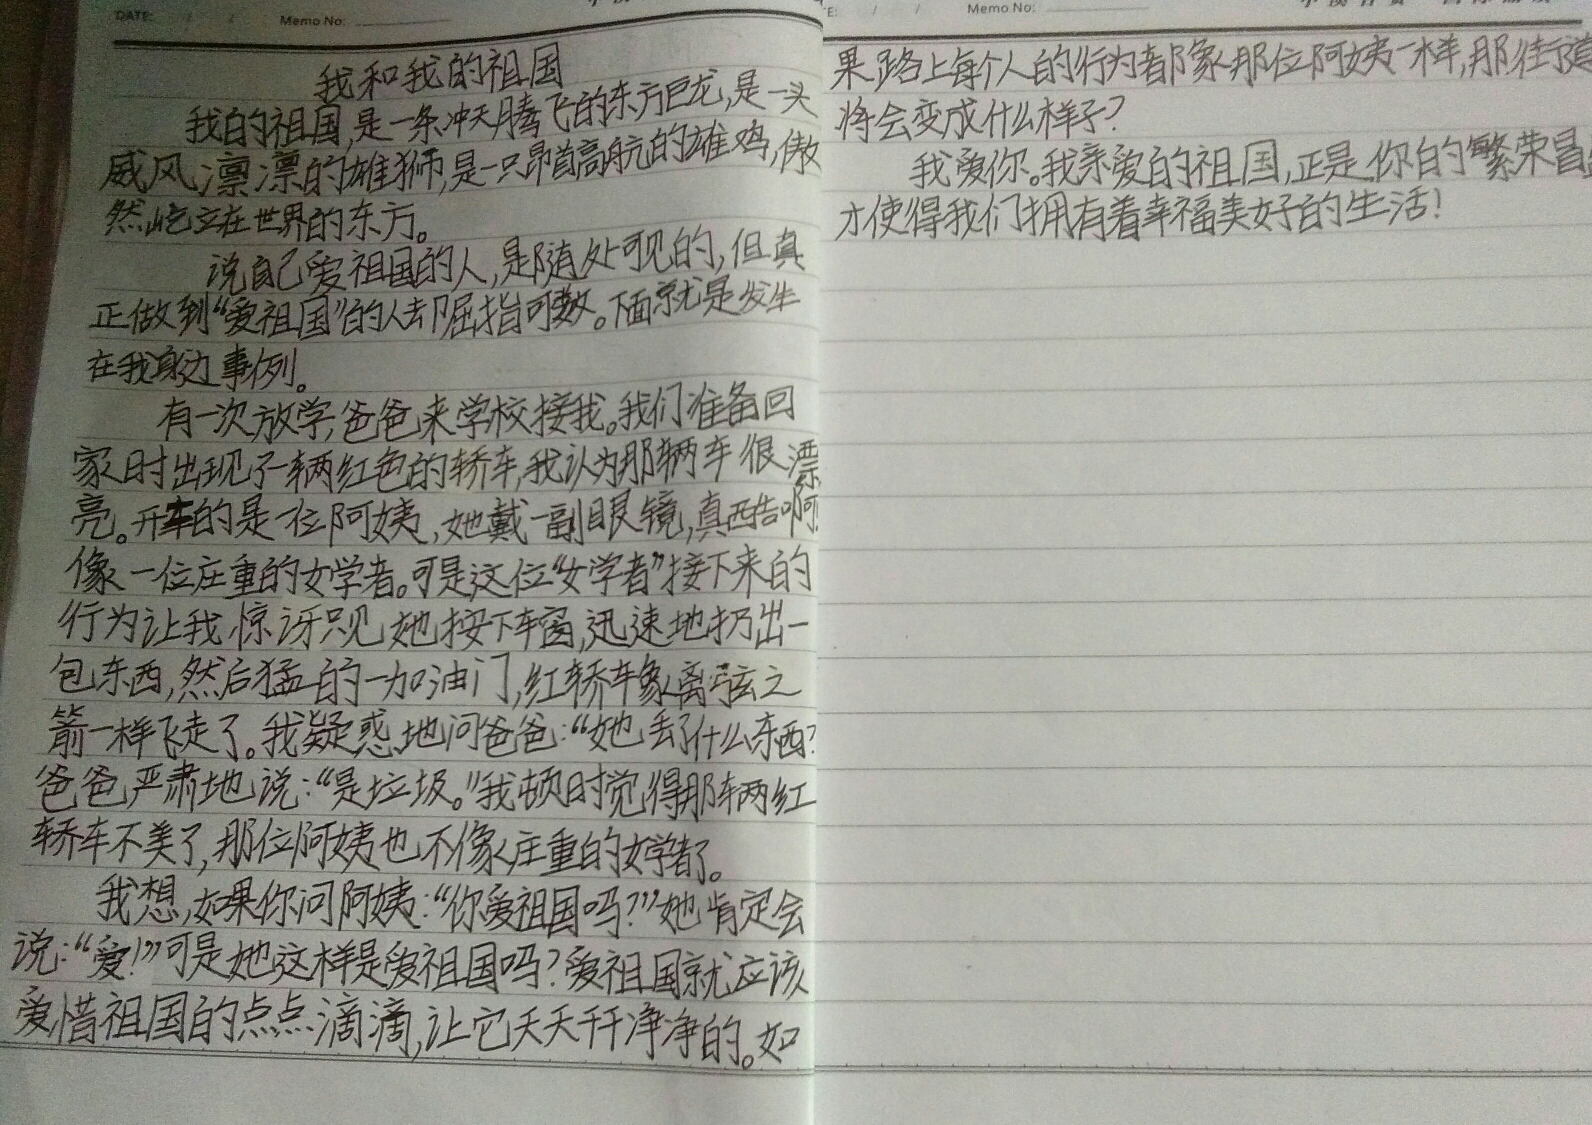 DATE: / /
Memo No:
我和我的祖国
我的祖国,是一条冲天腾飞的东方巨龙,是一头
威风凛凛的雄狮,是一只昂首高航的雄鸡,傲
然屹立在世界的东方。
说自己爱祖国的人,是随处可见的,但真
正做到“爱祖国”的人却屈指可数。下面就是发生
在我身边事例。
有一次放学,爸爸来学校接我。我们准备回
家时出现了一辆红色的轿车,我认为那辆车很漂
亮。开车的是一位阿姨,她戴一副眼镜,真酷啊!
像一位庄重的女学者。可是这位“女学者”接下来的
行为让我惊讶只见她按下车窗,迅速地扔出一
包东西,然后猛的一加油门,红轿车象离弦之
箭一样飞走了。我疑惑地问爸爸:“她丢了什么东西?
爸爸严肃地说:“是垃圾。”我顿时觉得那辆红
轿车不美了,那位阿姨也不像庄重的女学者了。
我想,如果你问阿姨:“你爱祖国吗?”她肯定会
说:“爱!”可是她这样是爱祖国吗?爱祖国就应该
爱惜祖国的点点滴滴,让它天天干干净净的。如
E: / /
Memo No:
果路上每个人的行为都象那位阿姨一样,那街道
将会变成什么样子?
我爱你。我亲爱的祖国,正是你的繁荣昌
才使得我们拥有着幸福美好的生活!